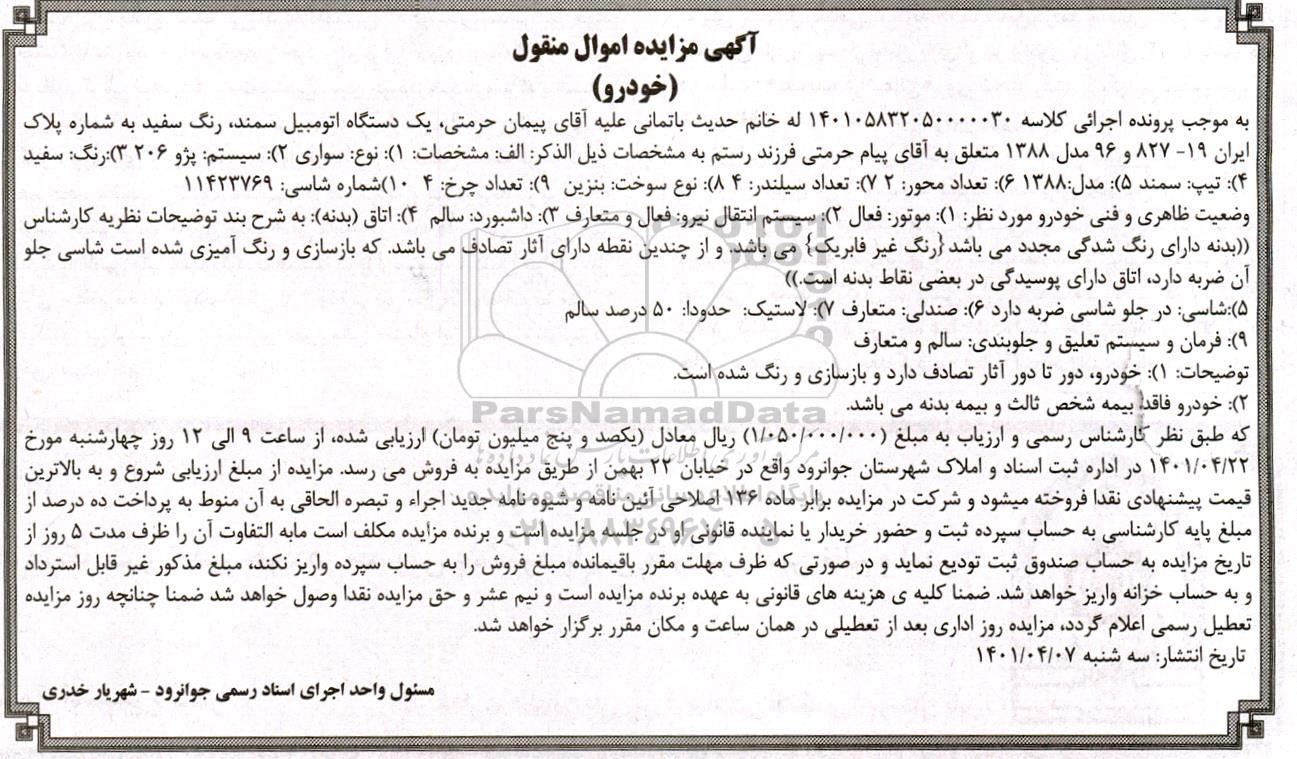 آگهی مزایده اموال منقول
(خودرو)
به موجب پرونده اجرائی کلاسه ۱۴۰۱۰۵۸۳۲۰۵۰۰۰۰۰۳۰ له خانم حدیث باتمانی علیه آقای پیمان حرمتی، یک دستگاه اتومبیل سمند، رنگ سفید به شماره پلاک
ایران ۱۹- ۸۲۷ و ۹۶ مدل ۱۳۸۸ متعلق به آقای پیام حرمتی فرزند رستم به مشخصات ذیل الذکر: الف: مشخصات: ۱): نوع: سواری ۲): سیستم: پژو ۲۰۶ ۳):رنگ: سفید
۴): تیپ: سمند ۵): مدل:۱۳۸۸ ۶): تعداد محور: ۲ ۷): تعداد سیلندر: ۴ ۸): نوع سوخت: بنزین ۹): تعداد چرخ: ۴ ۱۰)شماره شاسی: ۱۱۴۲۳۷۶۹
وضعیت ظاهری و فنی خودرو مورد نظر: ۱): موتور: فعال ۲): سیستم انتقال نیرو: فعال و متعارف ۳): داشبورد: سالم ۴): اتاق (بدنه): به شرح بند توضیحات نظریه کارشناس
((بدنه دارای رنگ شدگی مجدد می باشد {رنگ غیر فابریک} می باشد. و از چندین نقطه دارای آثار تصادف می باشد. که بازسازی و رنگ آمیزی شده است شاسی جلو
آن ضربه دارد، اتاق دارای پوسیدگی در بعضی نقاط بدنه است.))
۵):شاسی: در جلو شاسی ضربه دارد ۶): صندلی: متعارف ۷): لاستیک: حدودا: ۵۰ درصد سالم
۹): فرمان و سیستم تعلیق و جلوبندی: سالم و متعارف
توضیحات: ۱): خودرو، دور تا دور آثار تصادف دارد و بازسازی و رنگ شده است.
۲): خودرو فاقد بیمه شخص ثالث و بیمه بدنه می باشد.
ParsNamadData
که طبق نظر کارشناس رسمی و ارزیاب به مبلغ (۱/۰۵۰/۰۰۰/۰۰۰) ریال معادل (یکصد و پنج میلیون تومان) ارزیابی شده، از ساعت ۹ الی ۱۲ روز چهارشنبه مورخ
۱۴۰۱/۰۴/۲۲ در اداره ثبت اسناد و املاک شهرستان جوانرود واقع در خیابان ۲۲ بهمن از طریق مزایده به فروش می رسد. مزایده از مبلغ ارزیابی شروع و به بالاترین
قیمت پیشنهادی نقدا فروخته میشود و شرکت در مزایده برابر ماده ۱۳۶ اصلاحی آئین نامه و شیوه نامه جدید اجراء و تبصره الحاقی به آن منوط به پرداخت ده درصد از
مبلغ پایه کارشناسی به حساب سپرده ثبت و حضور خریدار یا نماینده قانونی او در جلسه مزایده است و برنده مزایده مکلف است مابه التفاوت آن را ظرف مدت ۵ روز از
تاریخ مزایده به حساب صندوق ثبت تودیع نماید و در صورتی که ظرف مهلت مقرر باقیمانده مبلغ فروش را به حساب سپرده واریز نکند، مبلغ مذکور غیر قابل استرداد
و به حساب خزانه واریز خواهد شد. ضمنا کلیه ی هزینه های قانونی به عهده برنده مزایده است و نیم عشر و حق مزایده نقدا وصول خواهد شد ضمنا چنانچه روز مزایده
تعطیل رسمی اعلام گردد، مزایده روز اداری بعد از تعطیلی در همان ساعت و مکان مقرر برگزار خواهد شد.
تاریخ انتشار: سه شنبه ۱۴۰۱/۰۴/۰۷
مسئول واحد اجرای اسناد رسمی جوانرود - شهریار خدری